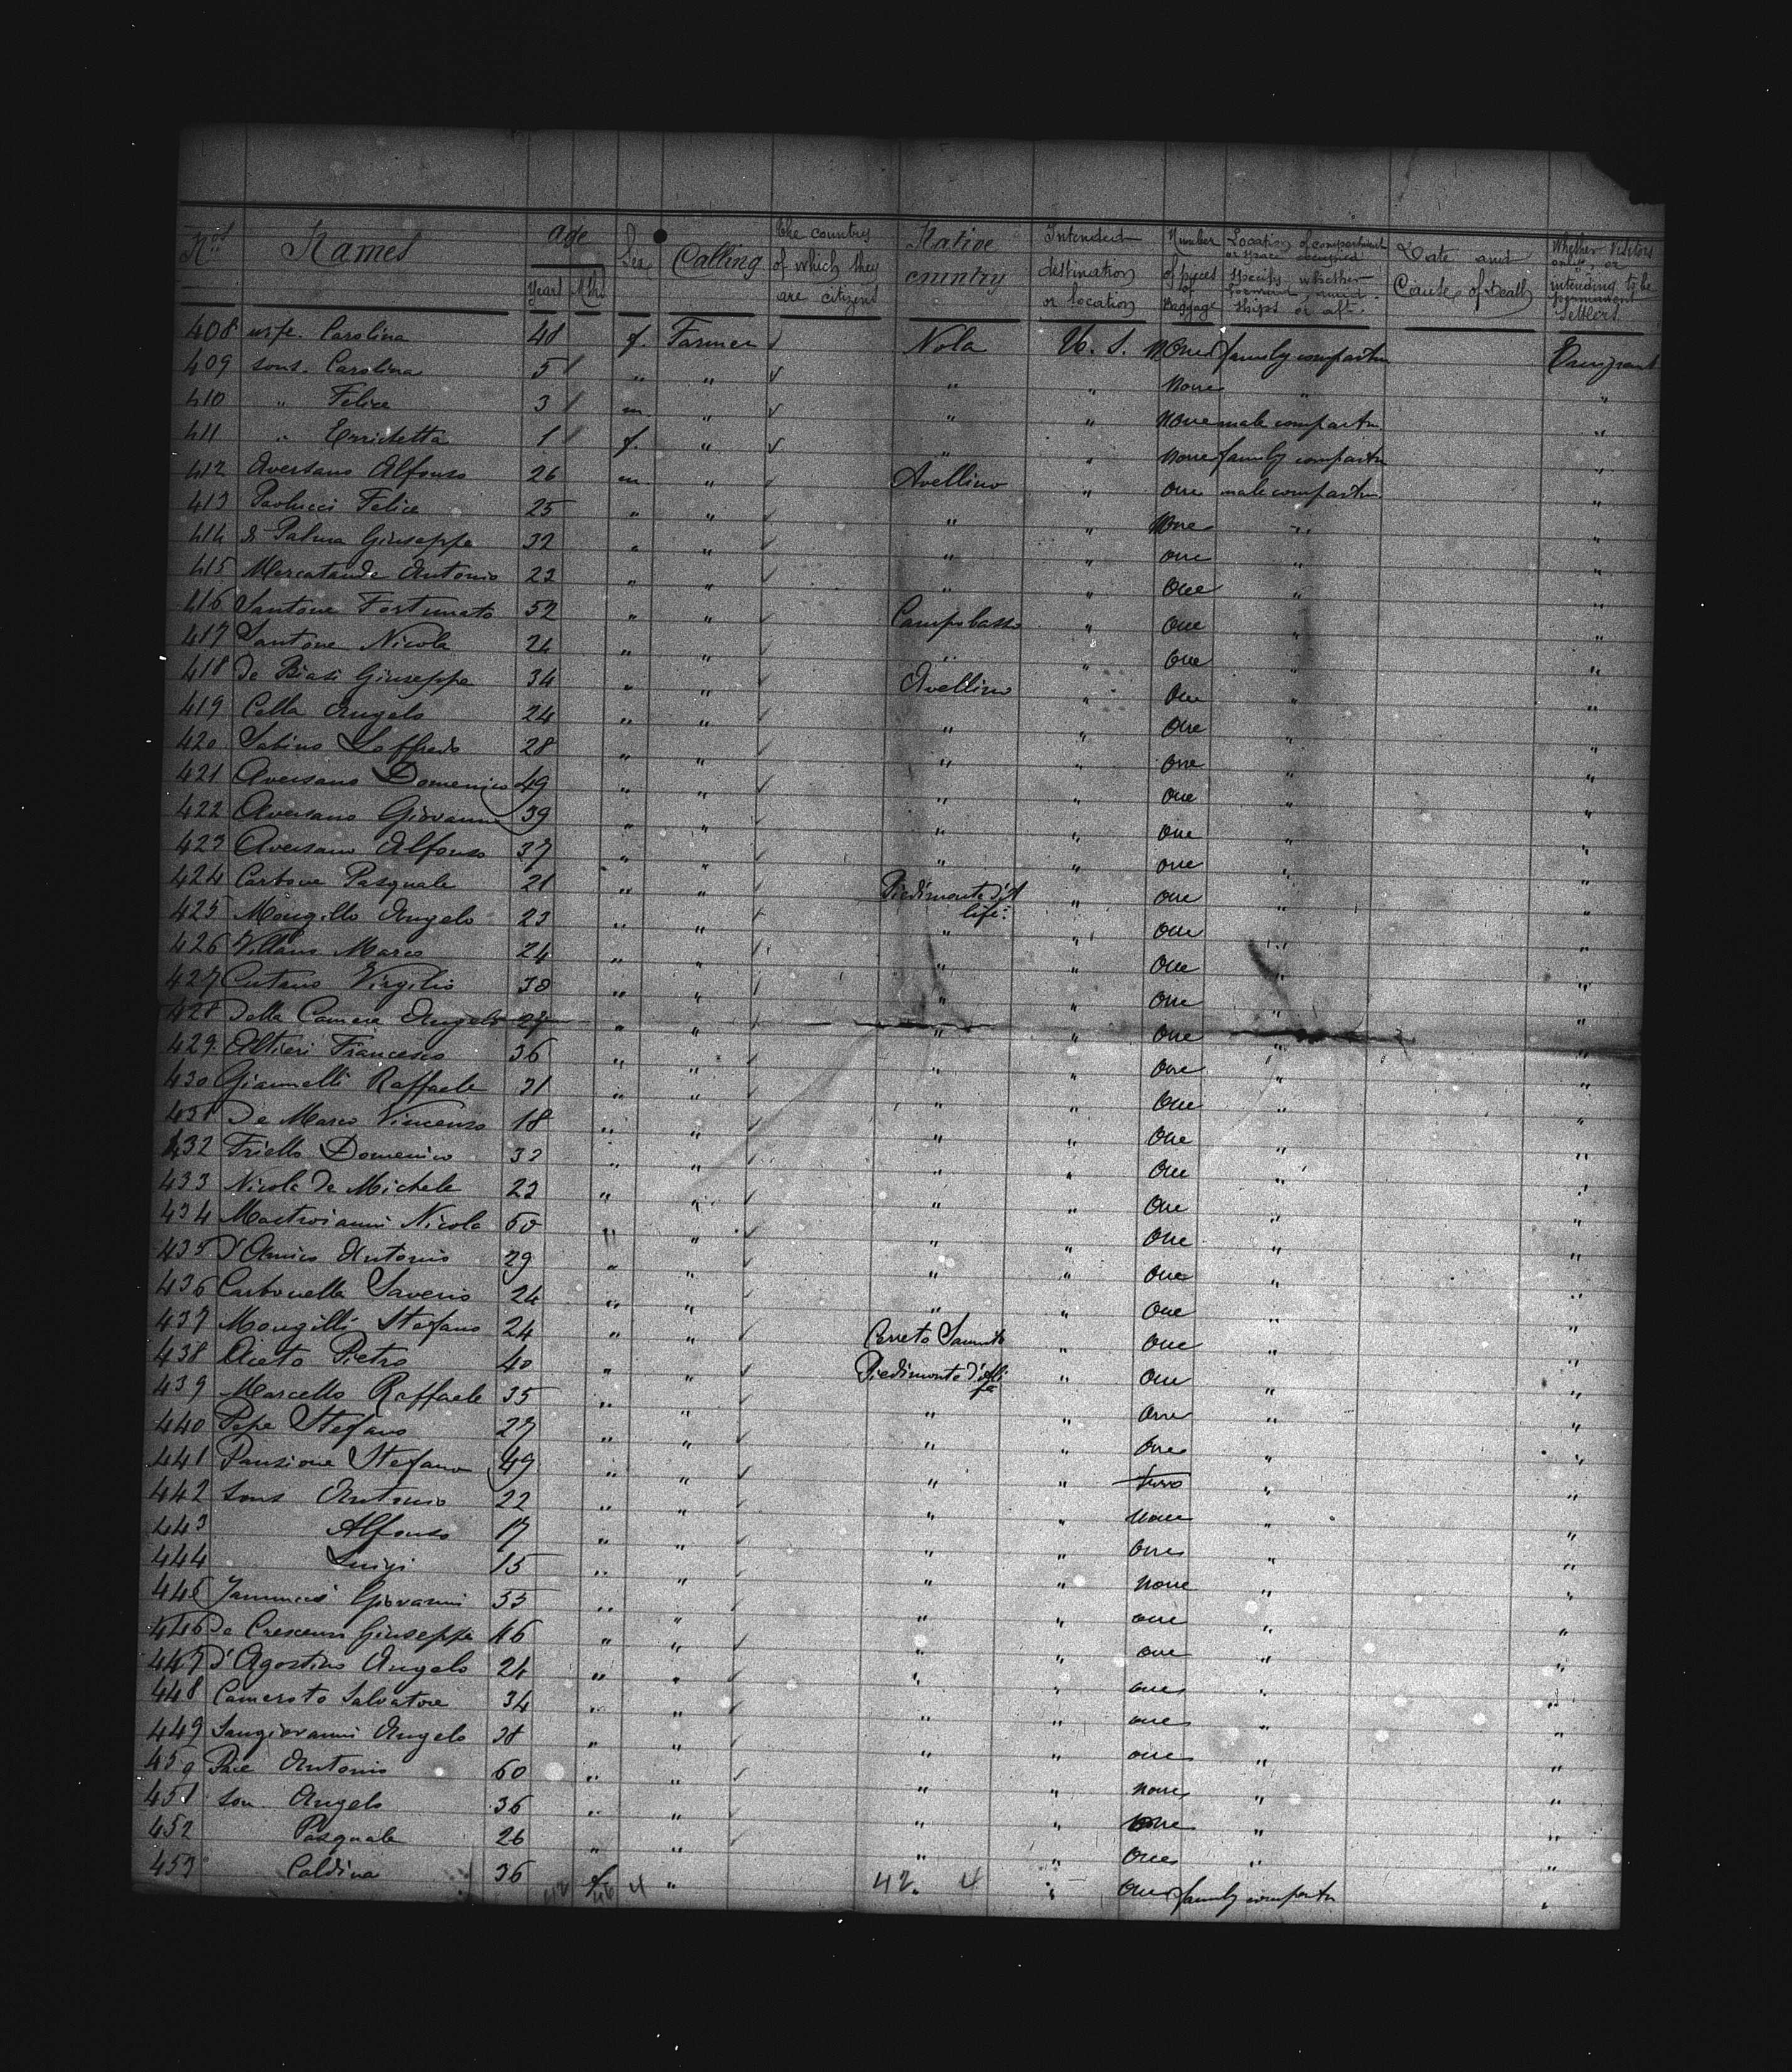 Nos Names age Sex Calling the country of which they are citizens Native country Intended destination or location Number of pieces of Baggage Location of compartment or space occupied Specify whether forward, amid ships or aft. Date and Cause of Death Whether Visitors only, or intending to be permanent Settlers.
Years Mths
408 wife. Carolina 48 f. Farmer Nola U. S. None family compartm Emigrant
409 sons. Carolina 5 " " " " None " "
410 " Felice 3 m. " " " None male compartm "
411 " Errichetta 1 f. " " " None family compartm "
412 Aversano Alfonso 26 m. " Avellino " One male compartm "
413 Paolucci Felice 25 " " " " None " "
414 di Palma Giuseppe 32 " " " " One " "
415 Mercatande Antonio 23 " " " " One " "
416 Santone Fortunato 52 " " Campobasso " One " "
417 Santone Nicola 24 " " " " One " "
418 De Biasi Giuseppe 34 " " Avellino " One " "
419 Cella Angelo 24 " " " " One " "
420 Sabino Loffredo 28 " " " " One " "
421 Aversano Domenico 49 " " " " One " "
422 Aversano Giovanni 39 " " " " One " "
423 Aversano Alfonso 37 " " " " One " "
424 Carbone Pasquale 21 " " Piedimonte d'A life. " One " "
425 Mongillo Angelo 23 " " " " One " "
426 Villano Marco 24 " " " " One " "
427 Cutano Virgilio 30 " " " " One " "
428 Della Camera Angelo 27 " " " " One " "
429 Altieri Francesco 36 " " " " One " "
430 Giannelli Raffaele 31 " " " " One " "
431 De Marco Vincenzo 18 " " " " One " "
432 Friello Domenico 32 " " " " One " "
433 Nicola De Michele 23 " " " " One " "
434 Mastroianni Nicola 50 " " " " One " "
435 D'Amico Antonio 29 " " " " One " "
436 Carbonella Saverio 24 " " " " One " "
437 Mongilli Stefano 24 " " Cerreto Sannita " One " "
438 Aceto Pietro 40 " " Piedimonte d'Alife " One " "
439 Marcello Raffaele 35 " " " " One " "
440 Pepe Stefano 27 " " " " One " "
441 Panzione Stefano 49 " " " " two " "
442 Sons Antonio 22 " " " " None " "
443 Alfonso 17 " " " " One " "
444 Luigi 15 " " " " None " "
445 Giovanni 33 " " " " One " "
446 De Crescenzo Giuseppe 46 " " " " One " "
447 D'Agostino Angelo 24 " " " " One " "
448 Cameroto Salvatore 34 " " " " One " "
449 Sangiovanni Angelo 38 " " " " One " "
450 Pace Antonio 60 " " " " None " "
451 son Angelo 36 " " " " None " "
452 Pasquale 26 " " " " One " "
453 Caldina 36 f. " " One family compartm "
42 4 42. 4